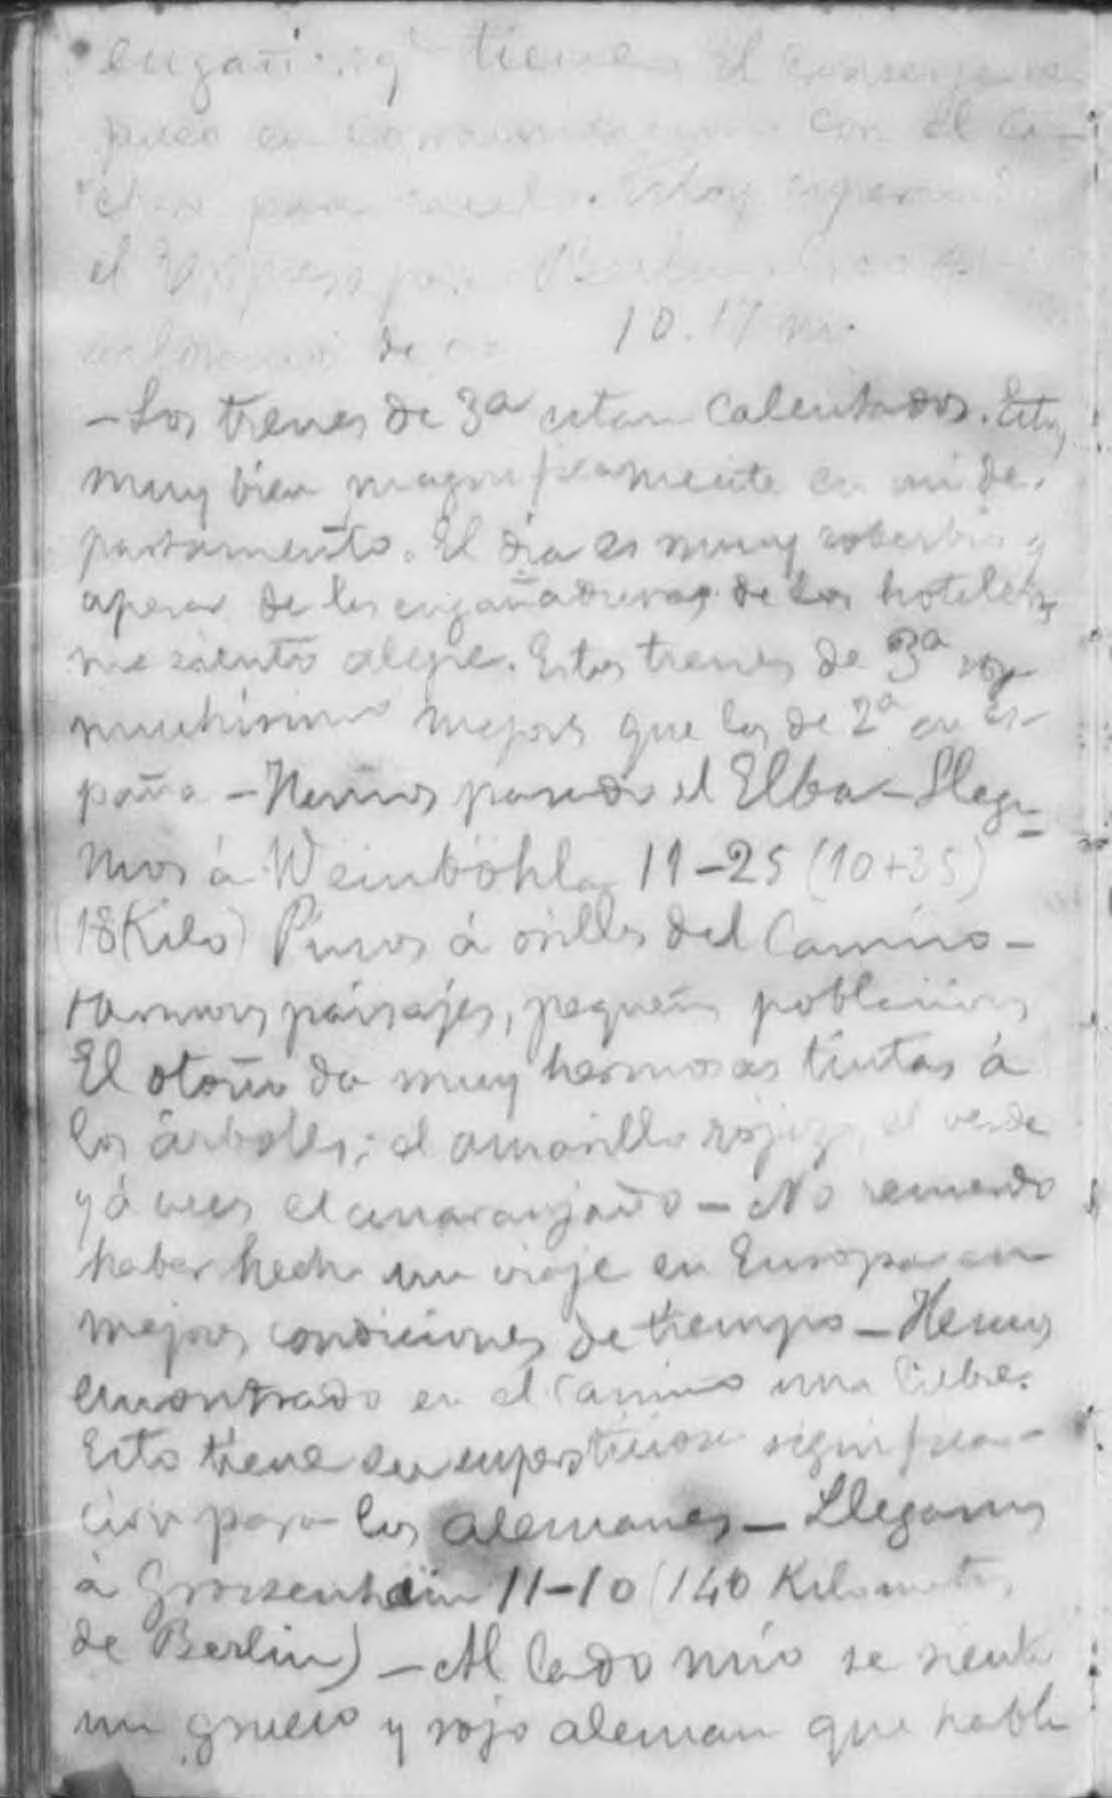 tiene El conserje
pues en con el
para Estoy
el Expreso para Berlin
de 10.17 m.
– Los trenes de 3ª estan calentados. Estoy
muy bien magnificamente en mi de-
partamento. El dia es muy soberbio y
apesar de las engañadurias de los hoteles,
me siento alegre. Estos trenes de 3ª son
muchisimo mejores que los de 2ª en Es-
paña – Hemos pasado el Elba – Llega-
mos á Weinböhla 11–25 (10+35)
(18 Kilo) Pinos á orillas del Camino –
Hermosos paisajes, pequeñas poblaciones
El otoño da muy hermosas tintas á
los árboles; el amarillo rojizo, el verde
y á veces el anaranjado – No recuerdo
haber hecho un viaje en Europa en
mejores condiciones de tiempo – Hemos
encontrado en el Camino una liebre.
Esto tiene su supersticiosa significa-
cion para los alemanes – Llegamos
á Grossenhain 11–10 (140 Kilometros
de Berlin) – Al lado mío se sienta
un grueso y rojo aleman que habla